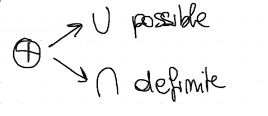 ∪ possible
⊕
∩ definite